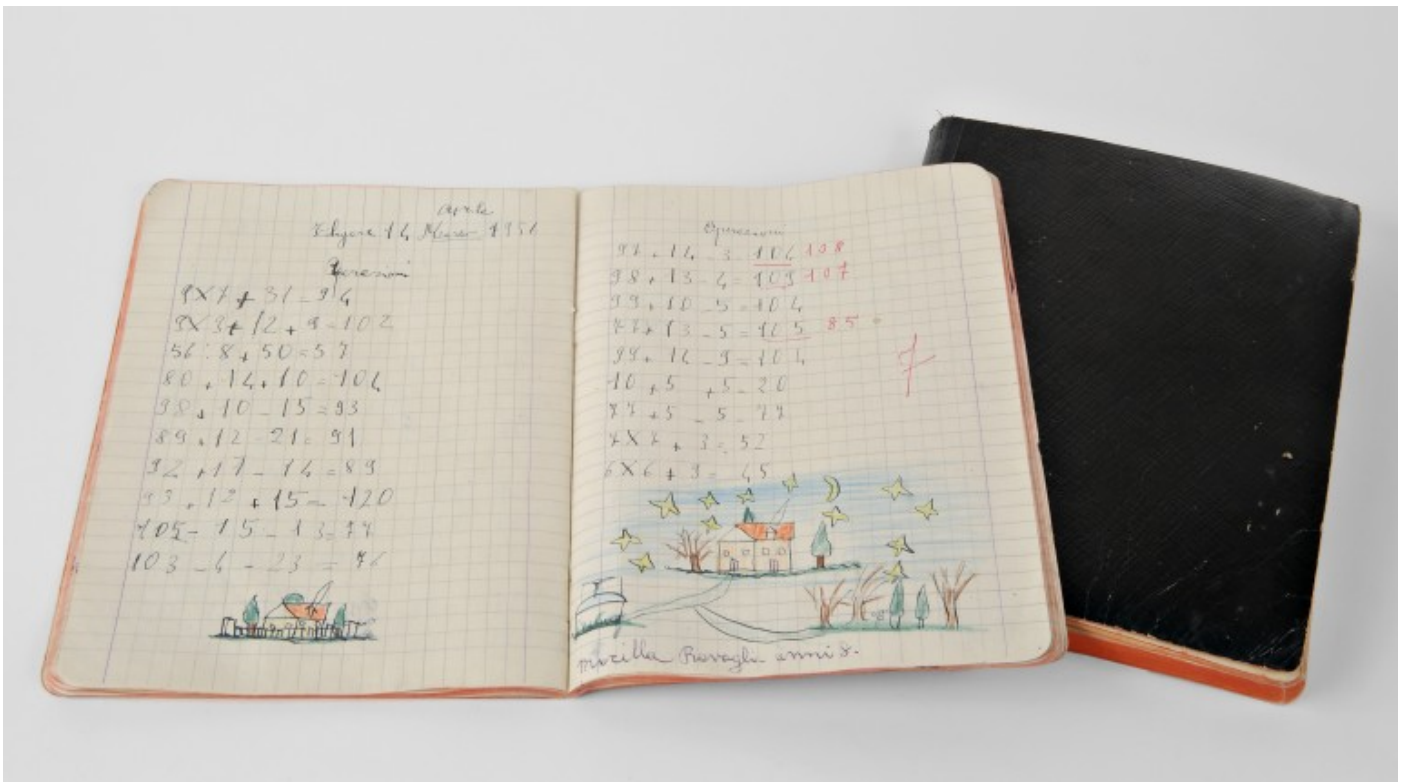 Aprile
14 1951
Operazioni
9X7 + 31 = 94
9X9 + 12 + 9 = 102
56 : 8 + 50 = 57
80 + 14 + 10 = 104
98 + 10 - 15 = 93
89 + 12 - 21 = 91
92 + 17 - 14 = 89
93 + 12 + 15 = 120
105 - 15 - 13 = 77
103 - 4 - 23 = 76
Operazioni
97 + 14 - 3 = 104 108
98 + 13 - 4 = 109 107
99 + 10 - 5 = 104
77 + 13 - 5 = 125 85
99 + 14 - 9 = 104
10 + 5 + 5 = 20
77 + 5 - 5 = 77
7X7 + 3 = 52
6X6 + 9 = 45
7
Mirella Provagli anni 8.